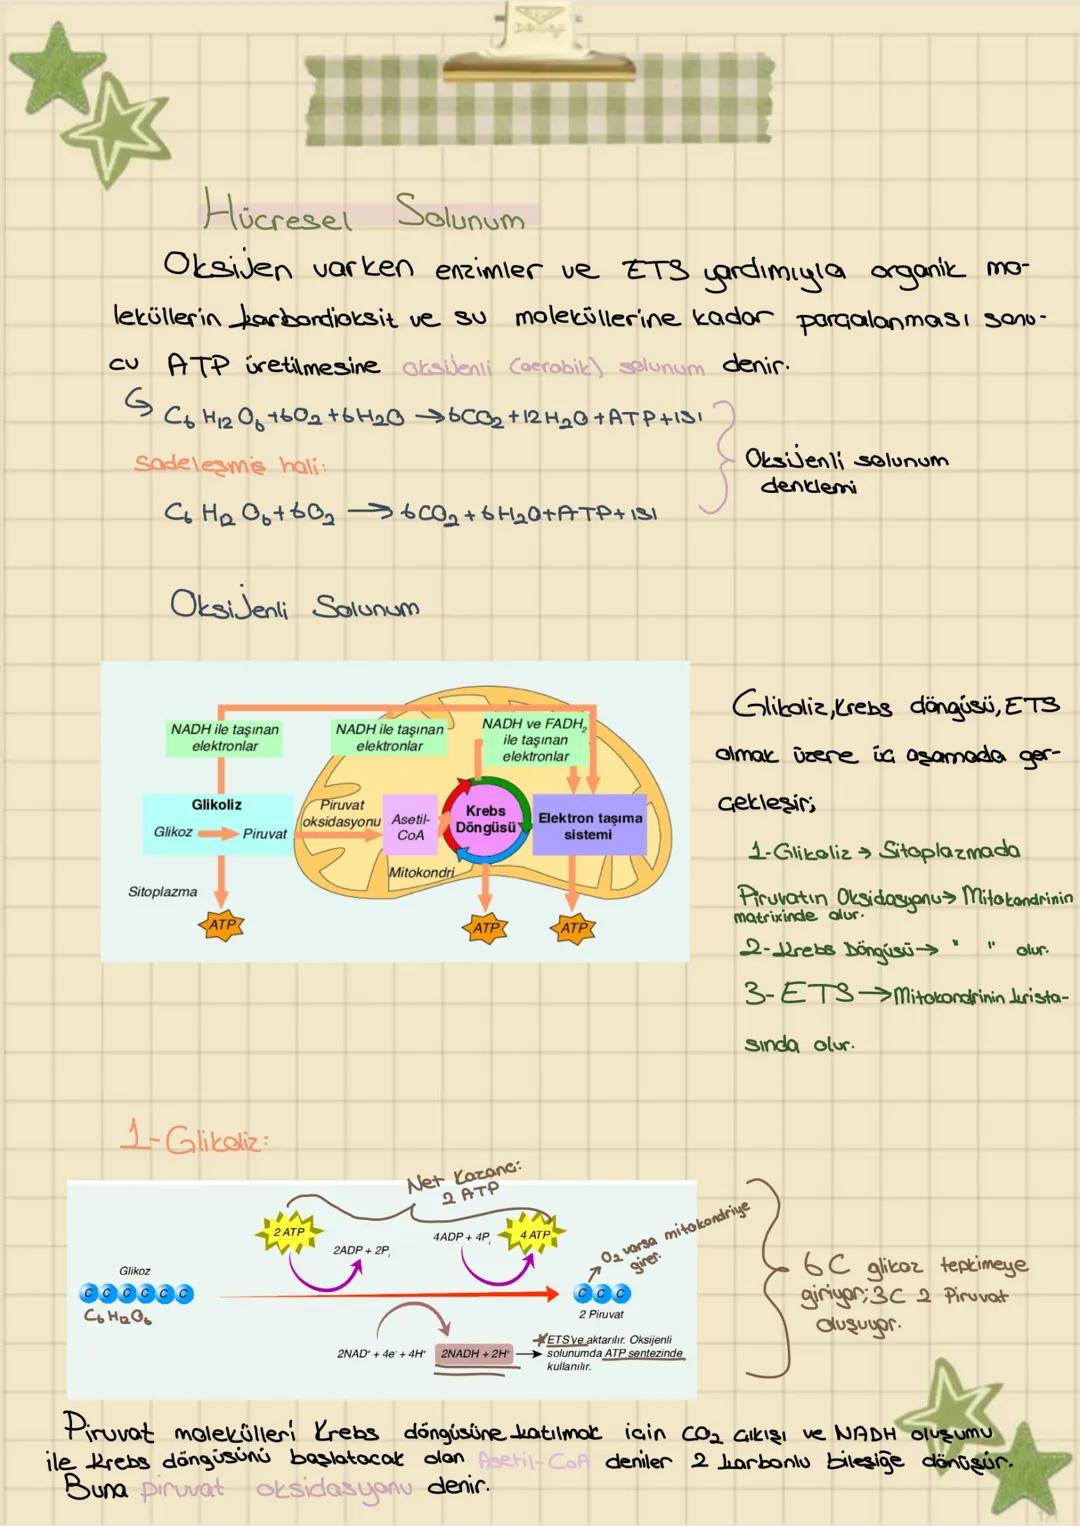 Hücresel Solunum
Oksijen varken enzimler ve ETS yardımıyla organik mo-
leküllerin karbondioksit ve su moleküllerine kadar parçalanması sonu-
cu ATP üretilmesine oksijenli (aerobik) solunum denir.
C₆H₁₂O₆+6O₂+6H₂O →6CO₂+12H₂O+ATP+ISI
Sadeleşmiş hali:
Oksijenli solunum
denklemi
C₆H₁₂O₆+6O₂ → 6CO₂+6H₂O+ATP+ISI
Oksijenli Solunum
NADH ile taşınan
elektronlar
NADH ile taşınan
elektronlar
NADH ve FADH₂
ile taşınan
elektronlar
Glikoliz
Glikoz → Piruvat
Piruvat
oksidasyonu
Asetil-
CoA
Krebs
Döngüsü
Elektron taşıma
sistemi
Mitokondri
Sitoplazma
ATP
ATP
ATP
Glikoliz, Krebs döngüsü, ETS
olmak üzere üç aşamada ger-
çekleşir;
1-Glikoliz → Sitoplazmada
Piruvatın Oksidasyonu→ Mitokondrinin
matrixinde olur.
2-Krebs Döngüsü→ " " olur.
3-ETS →Mitokondrinin krista-
sında olur.
1-Glikoliz:
Net Kazanç:
2 ATP
2 ATP
2ADP + 2Pᵢ
4ADP + 4Pᵢ
4 ATP
O₂ varsa mitokondriye
girer.
Glikoz
C C C C C C
C₆H₁₂O₆
C C C
2 Piruvat
2NAD⁺ + 4e⁻ + 4H⁺
2NADH + 2H⁺
ETS'ye aktarılır. Oksijenli
solunumda ATP sentezinde
kullanılır.
6C glikoz tepkimeye
giriyor; 3C 2 Piruvat
oluşuyor.
Piruvat molekülleri Krebs döngüsüne katılmak için CO₂ çıkışı ve NADH oluşumu
ile Krebs döngüsünü başlatacak olan Asetil-CoA deniler 2 karbonlu bileşiğe dönüşür.
Buna piruvat oksidasyonu denir.
1/1